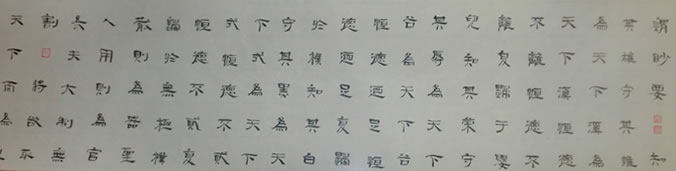 謂眇要知
其雄守其雌
為天下溪為
天下溪恆德
不離恆德不
離復歸于嬰
兒知其榮守
其辱為天下
谷為天下谷
恆德迺足恆
德迺足復歸
於樸知其白
守其黑為天
下式為天下
式恆德不貣
恆德不貣復
歸於無極樸
散則為器聖
人用則為官
長夫大制無
割將欲取
天下而為